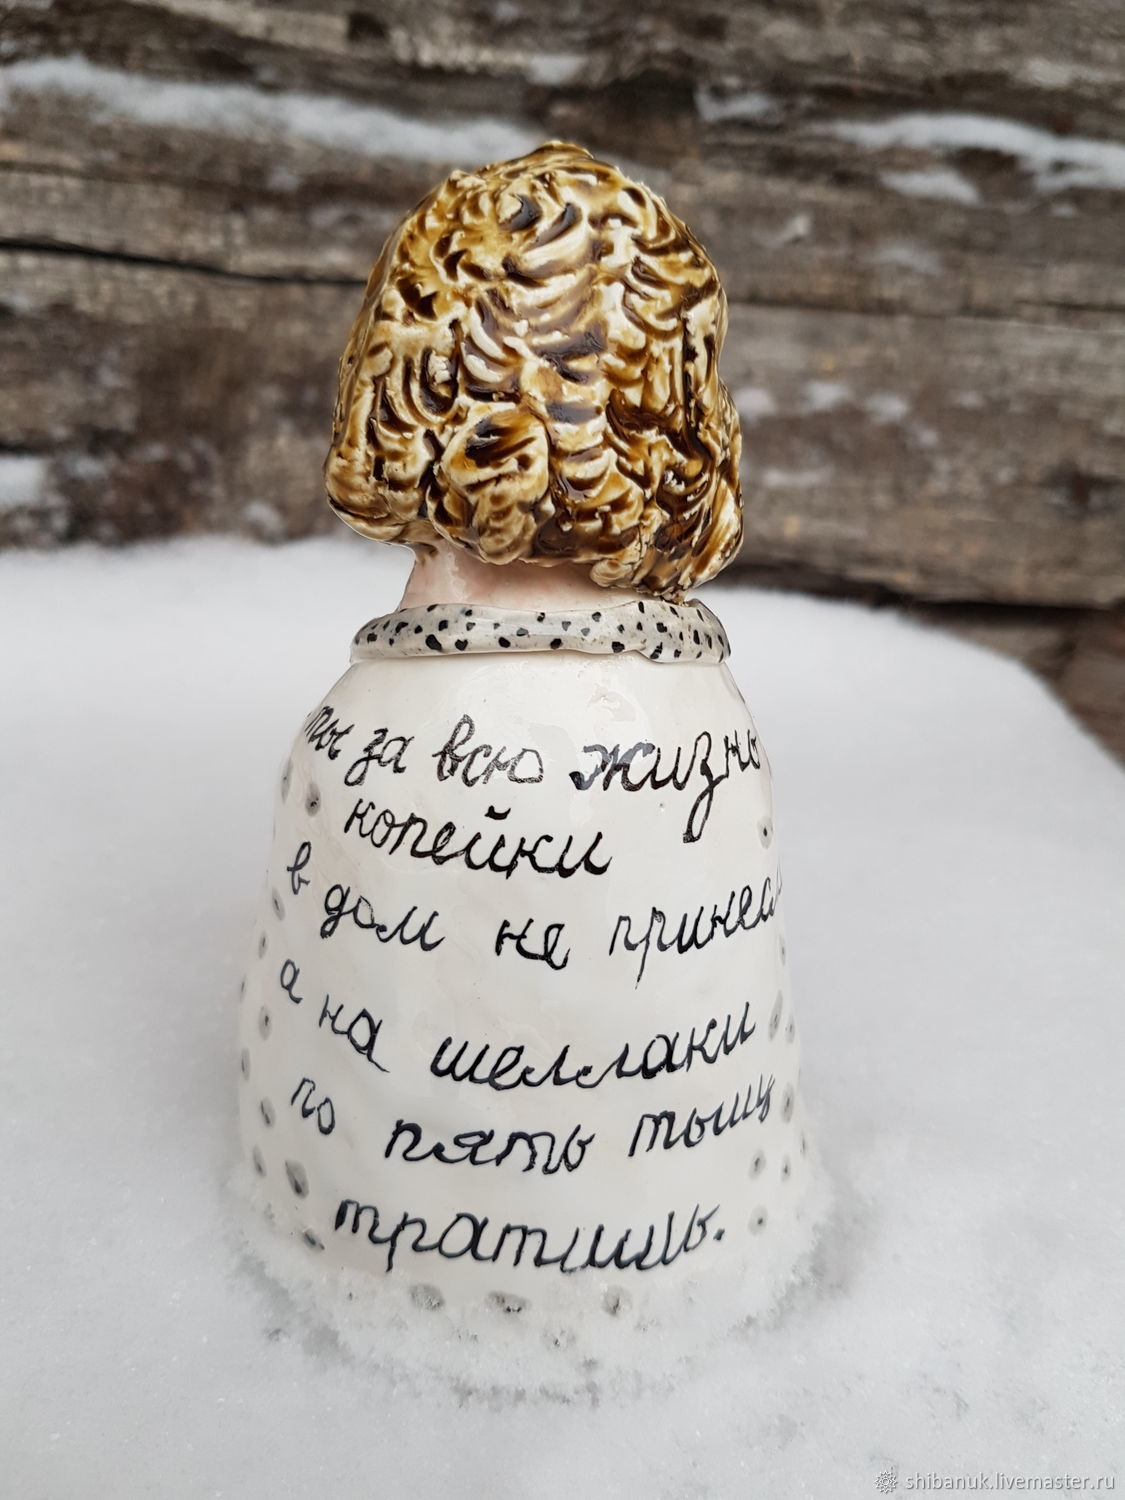 ты за всю жизнь
копейки
в дом не принесл
а на шеллаки
по пять тыщ
тратишь.
shibanuk.livemaster.ru